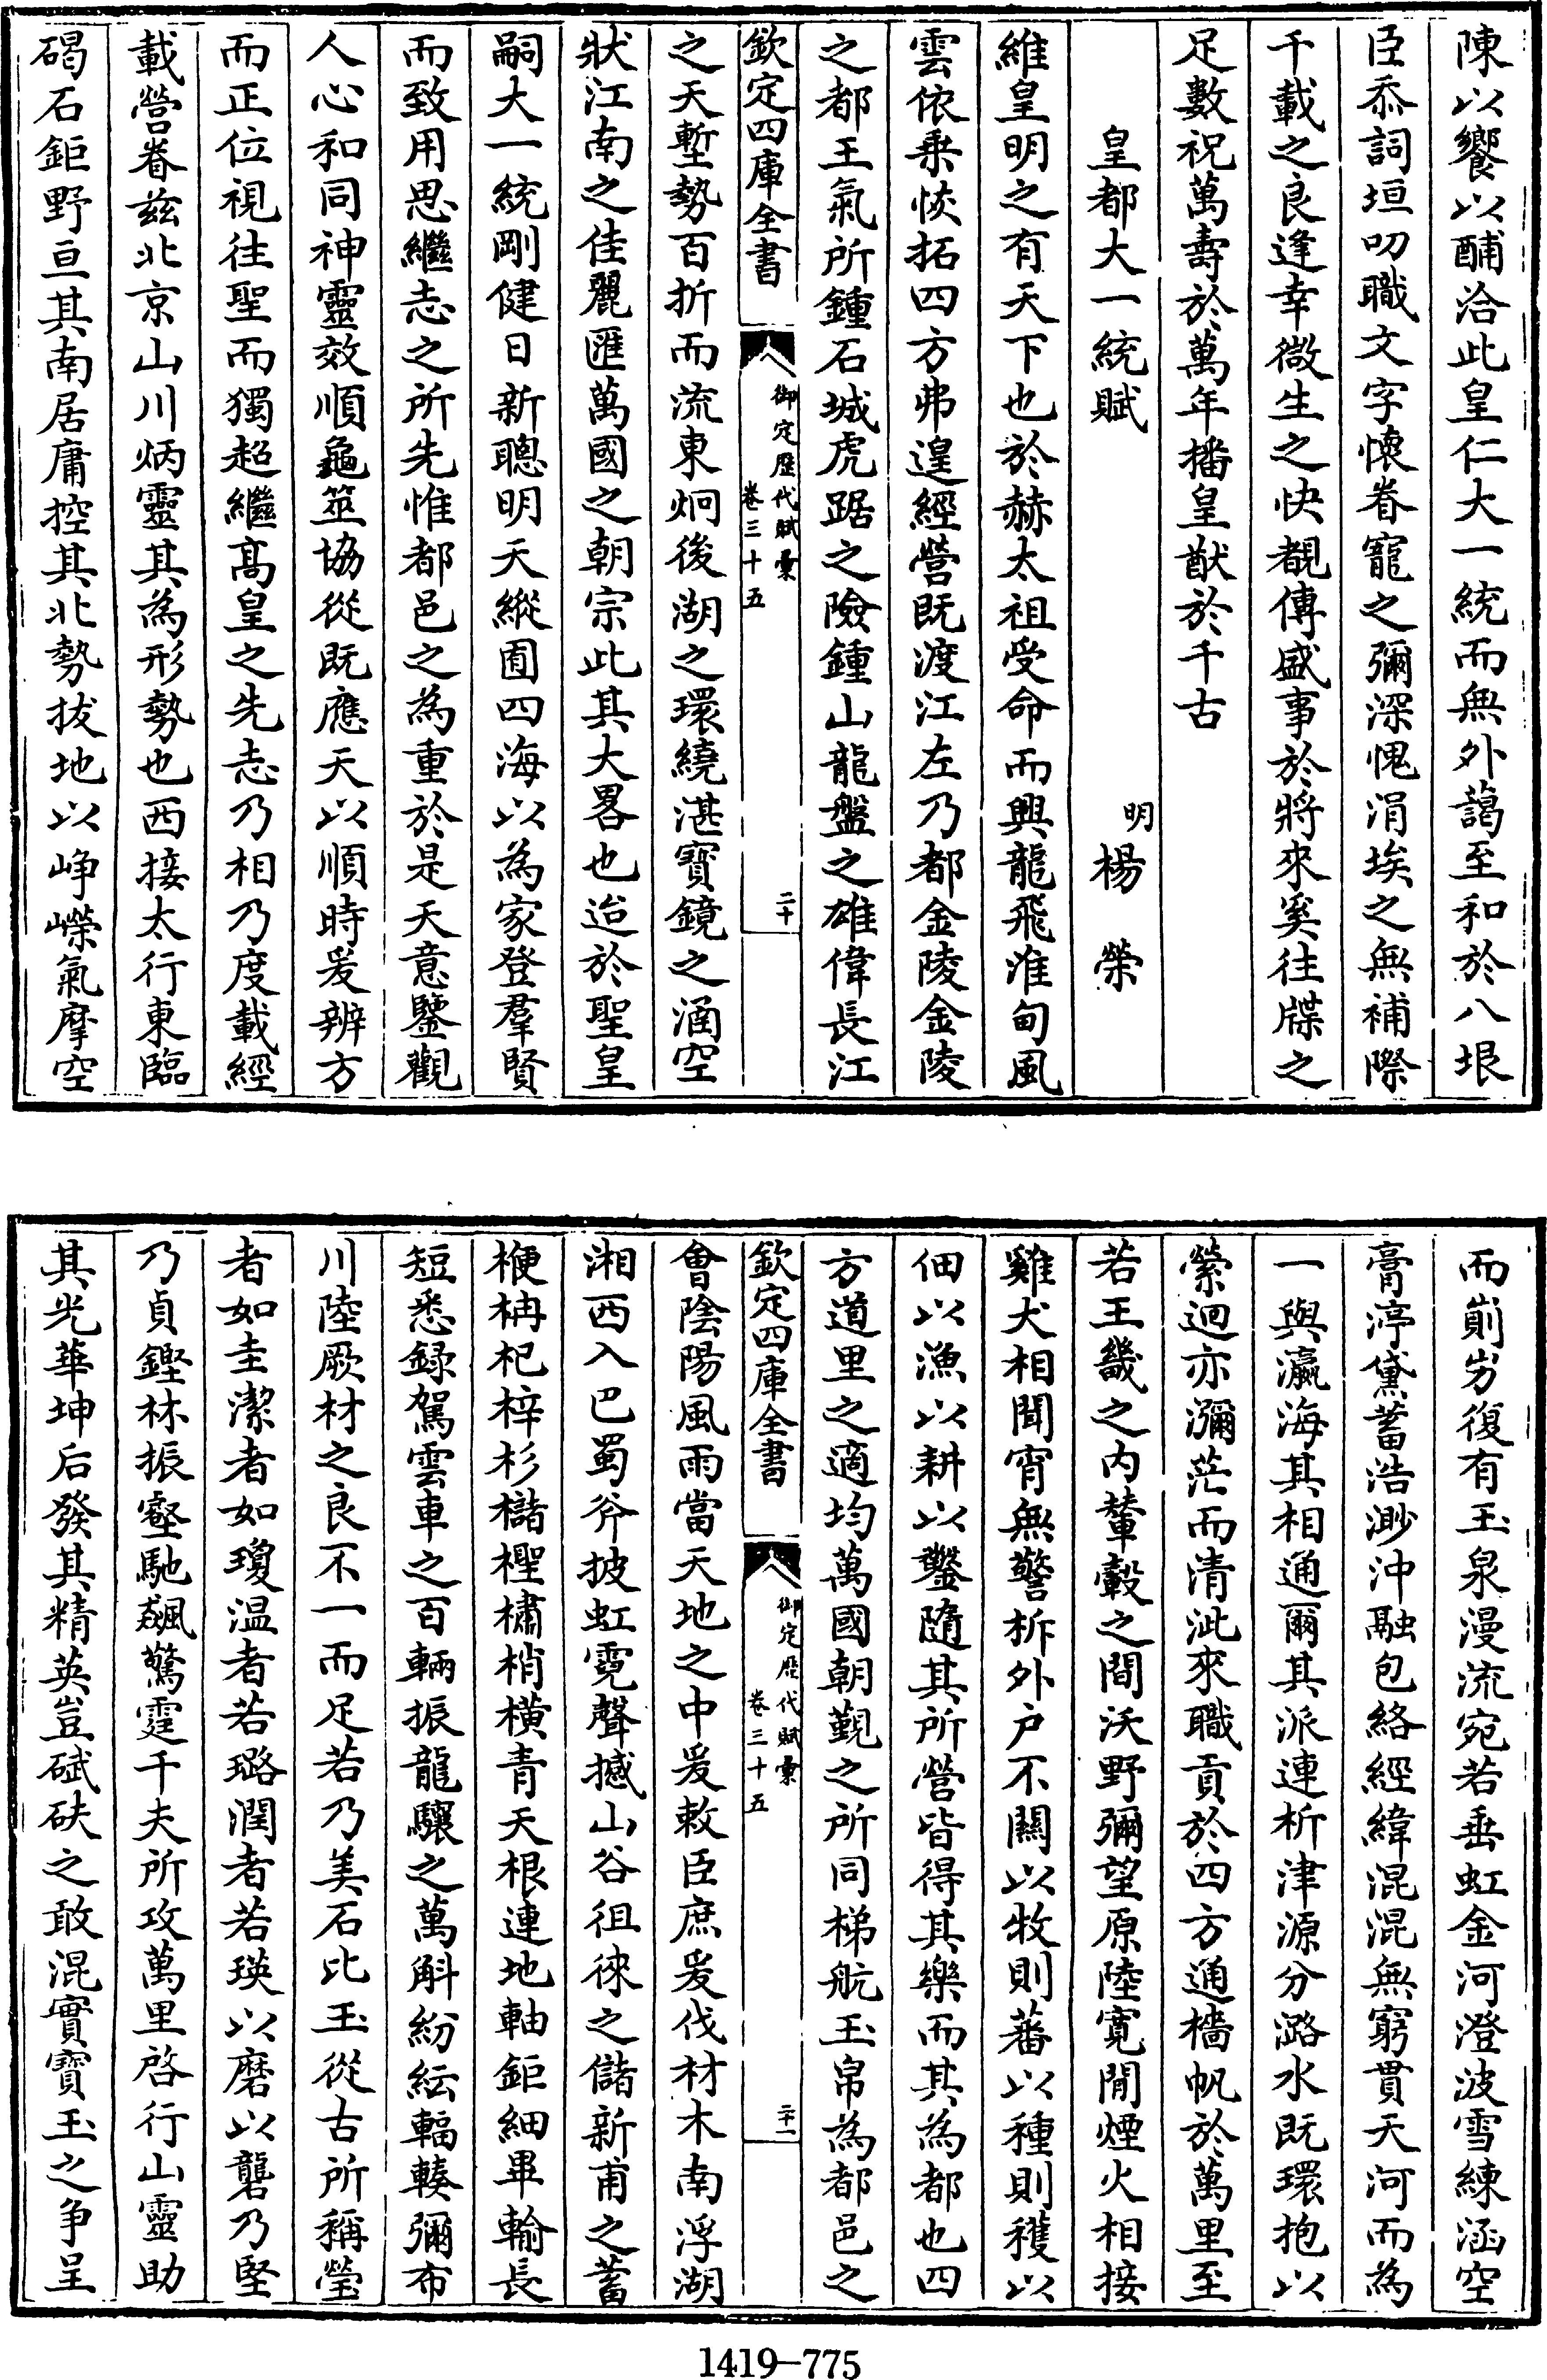 陳以饗以酺洽此皇仁大一統而無外藹至和於八垠
臣忝詞垣叨職文字懷眷寵之彌深愧涓埃之無補際
千載之良逢幸微生之快覩傳盛事於將來奚往牒之
足數祝萬壽於萬年播皇猷於千古
皇都大一統賦
明楊榮
維皇明之有天下也於赫太祖受命而興龍飛淮甸風
雲依乗恢拓四方弗遑經營既渡江左乃都金陵金陵
之都王氣所鍾石城虎踞之險鍾山龍盤之雄偉長江
欽定四庫全書
御定歴代賦彙
卷三十五
二十
之天塹勢百折而流東炯後湖之環繞湛寶鏡之涵空
狀江南之佳麗匯萬國之朝宗此其大畧也迨於聖皇
嗣大一統剛健日新聰明天縱囿四海以為家登羣賢
而致用思繼志之所先惟都邑之為重於是天意鑒觀
人心和同神靈效順龜筮協從既應天以順時爰辨方
而正位視往聖而獨超繼髙皇之先志乃相乃度載經
載營眷兹北京山川炳靈其為形勢也西接太行東臨
碣石鉅野亘其南居庸控其北勢拔地以峥嶸氣摩空
而崱屴復有玉泉漫流宛若垂虹金河澄波雪練涵空
膏渟黛蓄浩渺沖融包絡經緯混混無窮貫天河而為
一與瀛海其相通爾其派連析津源分潞水既環抱以
縈迴亦瀰茫而清泚來職貢於四方通檣帆於萬里至
若王畿之内輦轂之間沃野彌望原陸寛閒煙火相接
雞犬相聞宵無警柝外户不闗以牧則蕃以種則穫以
佃以漁以耕以鑿隨其所營皆得其樂而其為都也四
方道里之適均萬國朝覲之所同梯航玉帛為都邑之
欽定四庫全書
御定歴代賦彙
卷三十五
二十一
會陰陽風雨當天地之中爰敕臣庶爰伐材木南浮湖
湘西入巴蜀斧披虹霓聲撼山谷徂徠之儲新甫之蓄
楩柟杞梓杉櫧檉橚梢横青天根連地軸鉅細畢輸長
短悉録駕雲車之百輛振龍驤之萬斛紛紜輻輳彌布
川陸厥材之良不一而足若乃美石比玉從古所稱瑩
者如圭潔者如瓊温者若璐潤者若瑛以磨以礱乃堅
乃貞鏗林振壑馳飆驚霆千夫所攻萬里啓行山靈助
其光華坤后發其精英豈碔砆之敢混實寶玉之争呈
1419—775